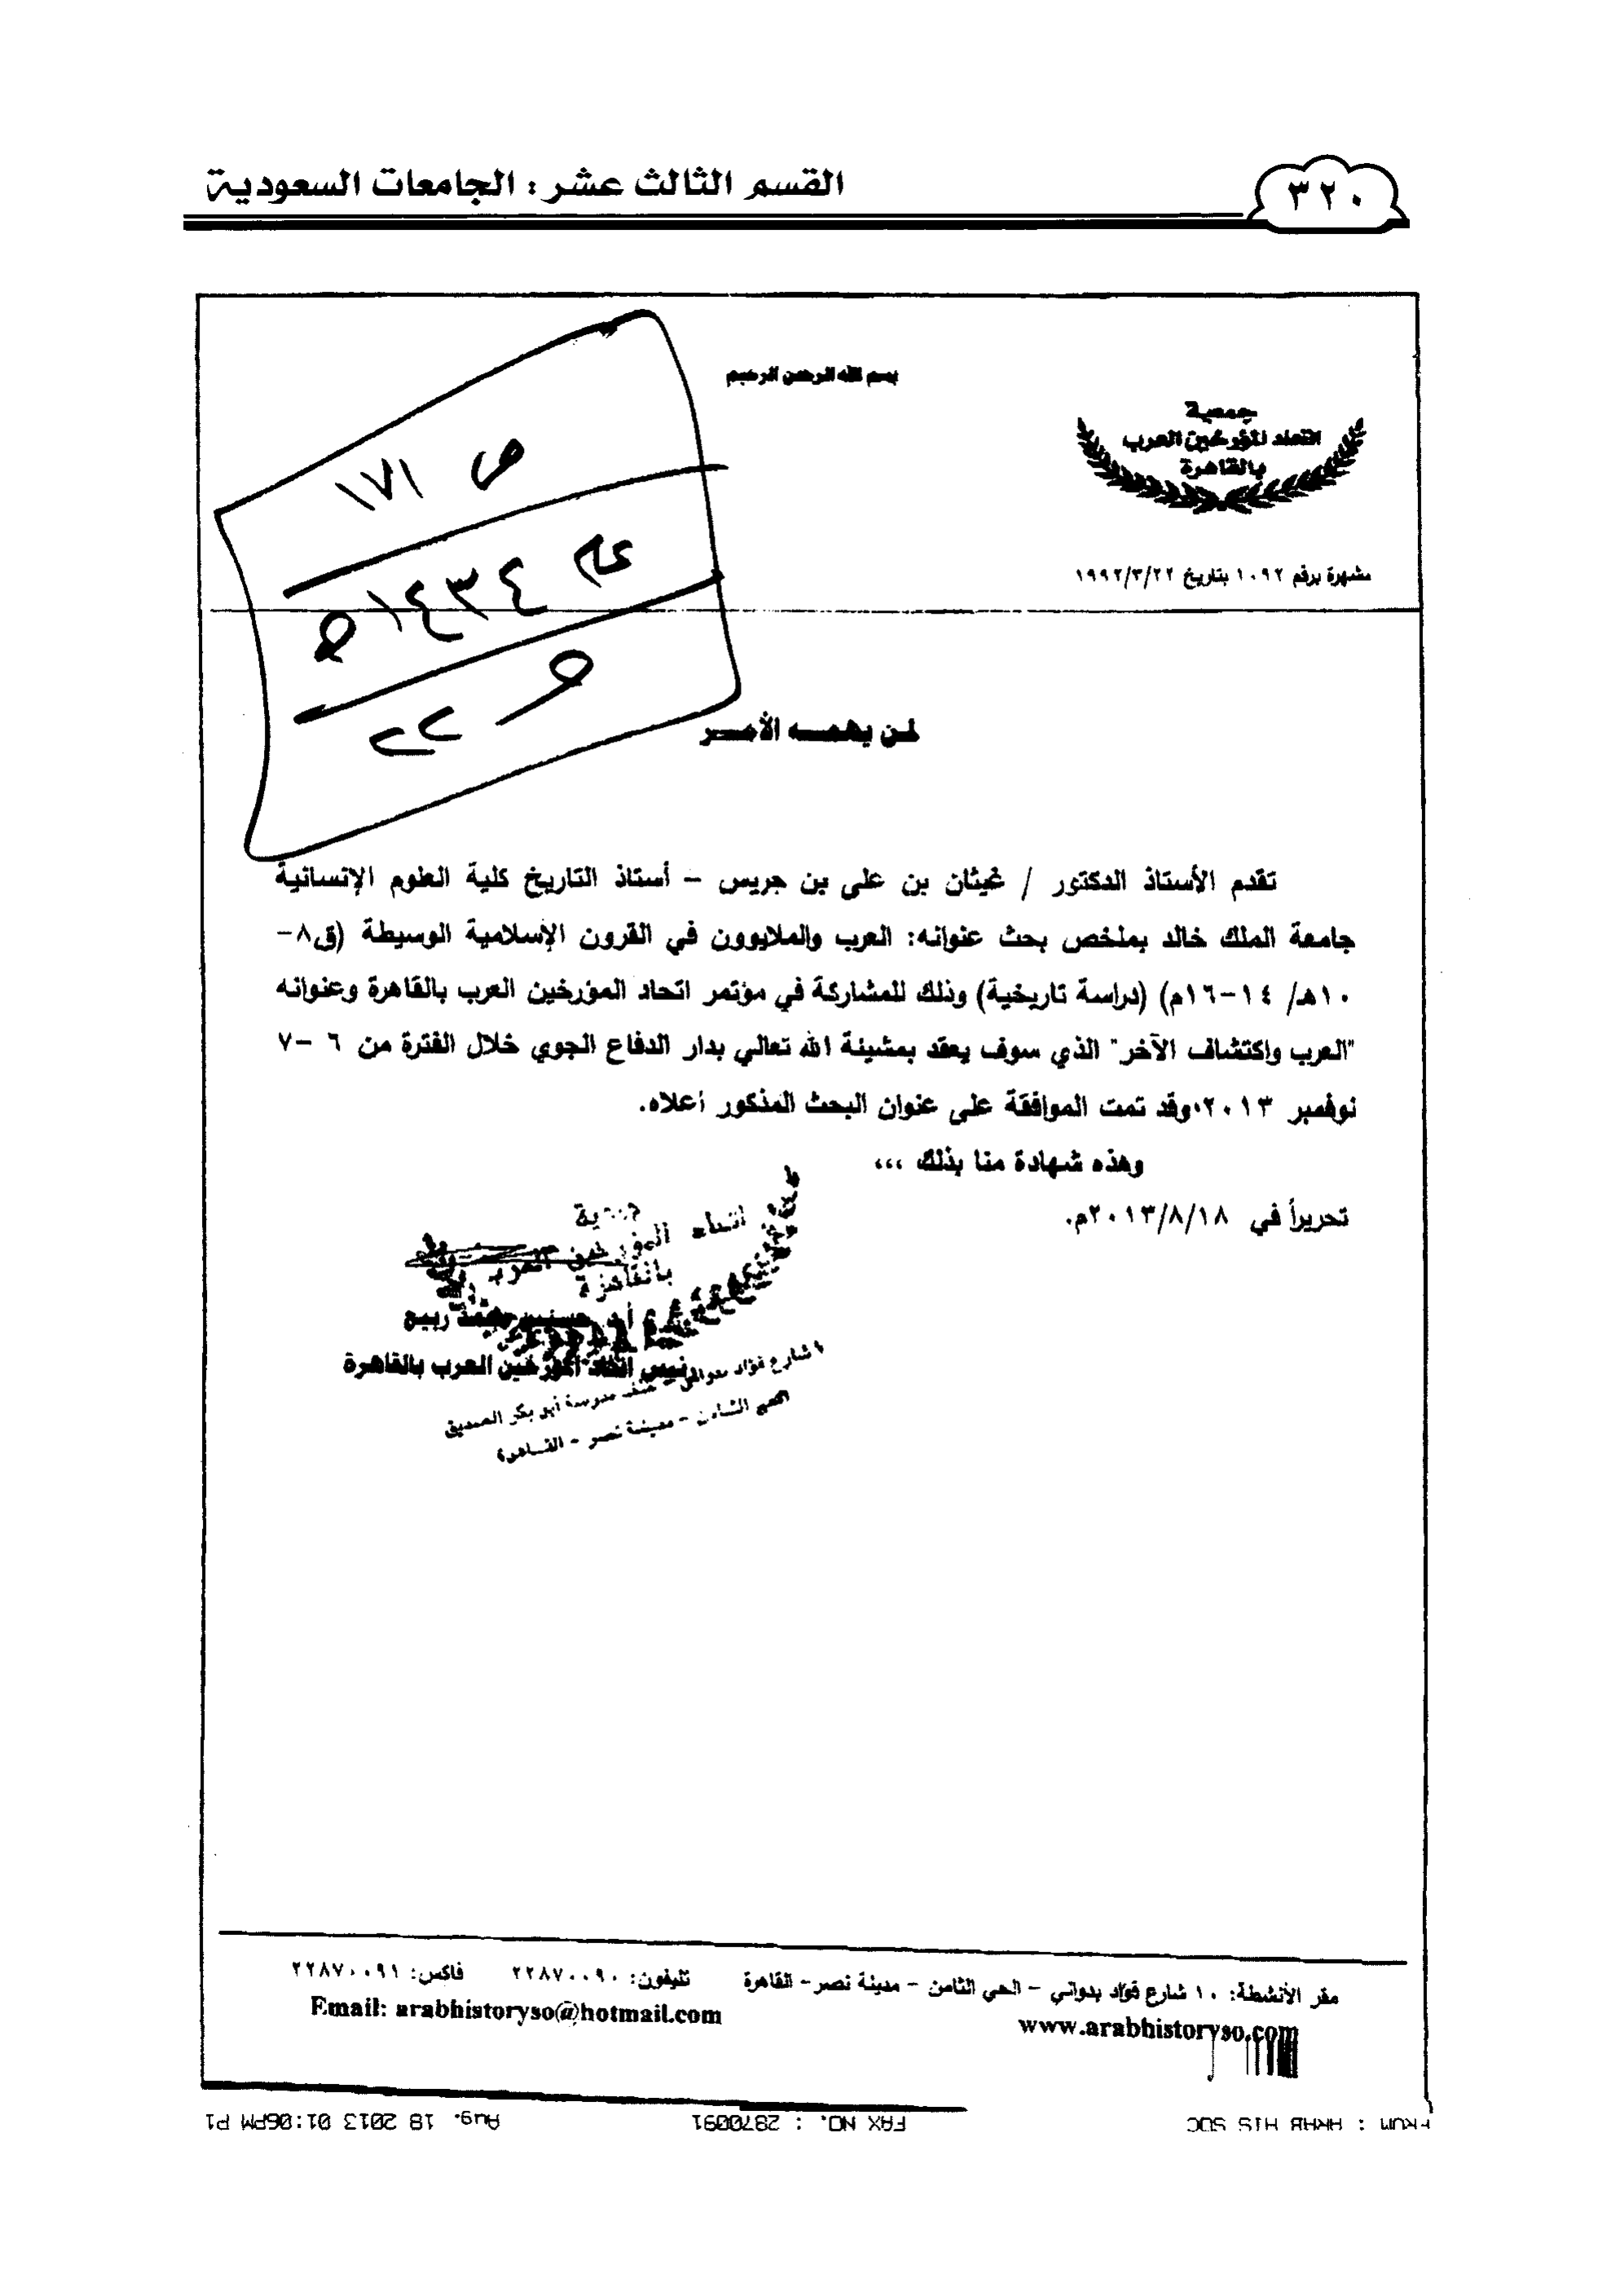 ٣٢٠
القسم الثالث عشر: الجامعات السعودية
بسم الله الرحمن الرحيم
جمعية
اتحاد المؤرخين العرب
بالقاهرة
مشهرة برقم ١٠٩٢ بتاريخ ١٩٩٢/٣/٢٢
ص ١٧١
عام ١٤٣٤هـ
٢٢
لمن يهمه الأمر
تقدم الأستاذ الدكتور / غيثان بن على بن جريس – أستاذ التاريخ كلية العلوم الإنسانية
جامعة الملك خالد بملخص بحث عنوانه: العرب والملايوون في القرون الإسلامية الوسيطة (ق٨–
١٠هـ/ ١٤–١٦م) (دراسة تاريخية) وذلك للمشاركة في مؤتمر اتحاد المؤرخين العرب بالقاهرة وعنوانه
"العرب واكتشاف الآخر" الذي سوف يعقد بمشيئة الله تعالي بدار الدفاع الجوي خلال الفترة من ٦ –٧
نوفمبر ٢٠١٣،وقد تمت الموافقة على عنوان البحث المذكور أعلاه.
وهذه شهادة منا بذلك ،،،
تحريراً في ٢٠١٣/٨/١٨م.
جمعية
اتحاد المؤرخين العرب
بالقاهرة
أ.د. حسنين محمد ربيع
رئيس اتحاد المؤرخين العرب بالقاهرة
شارع فؤاد بدوانى – خلف مدرسة أبو بكر الصديق
الحى الثامن – مدينة نصر – القاهرة
مقر الأنشطة: ١٠ شارع فؤاد بدواني – الحي الثامن – مدينة نصر– القاهرة تليفون: ٢٢٨٧٠٠٩٠ فاكس: ٢٢٨٧٠٠٩١
www.arabhistoryso.com Email: arabhistoryso@hotmail.com
FROM : ARAB HIS SOC FAX NO. : 2870091 Aug. 18 2013 01:06PM P1